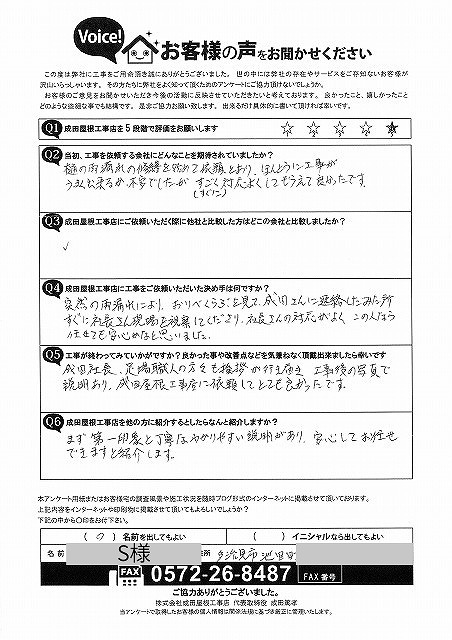 Voice!
お客様の声をお聞かせください
この度は弊社に工事をご用命頂き誠にありがとうございました。世の中には弊社の存在やサービスをご存知ないお客様が
沢山いらっしゃいます。その方たちに弊社をよく知って頂くためのアンケートにご協力頂けないでしょうか。
お客様のご意見をお聞かせいただき今後の活動に反映させていただきたいと考えております。良かったこと、嬉しかったこと
どのような些細な事でも結構です。是非ご協力お願い致します。出来るだけ具体的に書いて頂ければ幸いです。
Q1 成田屋根工事店を5段階で評価をお願いします ☆ ☆ ☆ ☆ ★
Q2 当初、工事を依頼する会社にどんなことを期待されていましたか?
樋の雨漏れの修繕を初めて依頼しており、ほんとうに工事が
うまく出来るか不安でしたが すごく対応よくしてもらえて良かったです。
(すぐに)
Q3 成田屋根工事店にご依頼いただく際に他社と比較した方はどこの会社と比較しましたか?
Q4 成田屋根工事店に工事をご依頼いただいた決め手は何ですか?
突然の雨漏れにより、おりべくらぶを見て、成田さんに連絡してみた所
すぐに社長さん現場を視察してくださり、社長さんの対応がよく この人なら
任せても安心かなと思いました。
Q5 工事が終わってみていかがですか?良かった事や改善点などを気兼ねなく頂戴出来ましたら幸いです
成田社長、足場職人の方々も挨拶が行き届き 工事後の写真で
説明あり、成田屋根工事店に依頼してとても良かったです。
Q6 成田屋根工事店を他の方に紹介するとしたらなんと紹介しますか?
まず第一印象と丁寧なわかりやすい説明があり、安心してお任せ
できますと紹介します。
本アンケート用紙またはお客様宅の調査風景や施工状況を随時ブログ形式のインターネットに掲載させて頂いております。
上記内容をインターネットや印刷物に掲載させて頂いてもよろしいでしょうか?
下記の中から〇印をお付下さい。
( ○ ) 名前を出してもよい ( ) イニシャルなら出してもよい
名前 S様 住所 多治見市池田町
FAX 0572-26-8487 FAX番号
ご協力ありがとうございました。
株式会社成田屋根工事店 代表取締役 成田崇孝
当アンケートで取得したお客様の個人情報は関係法規に基づき厳正に管理いたします。